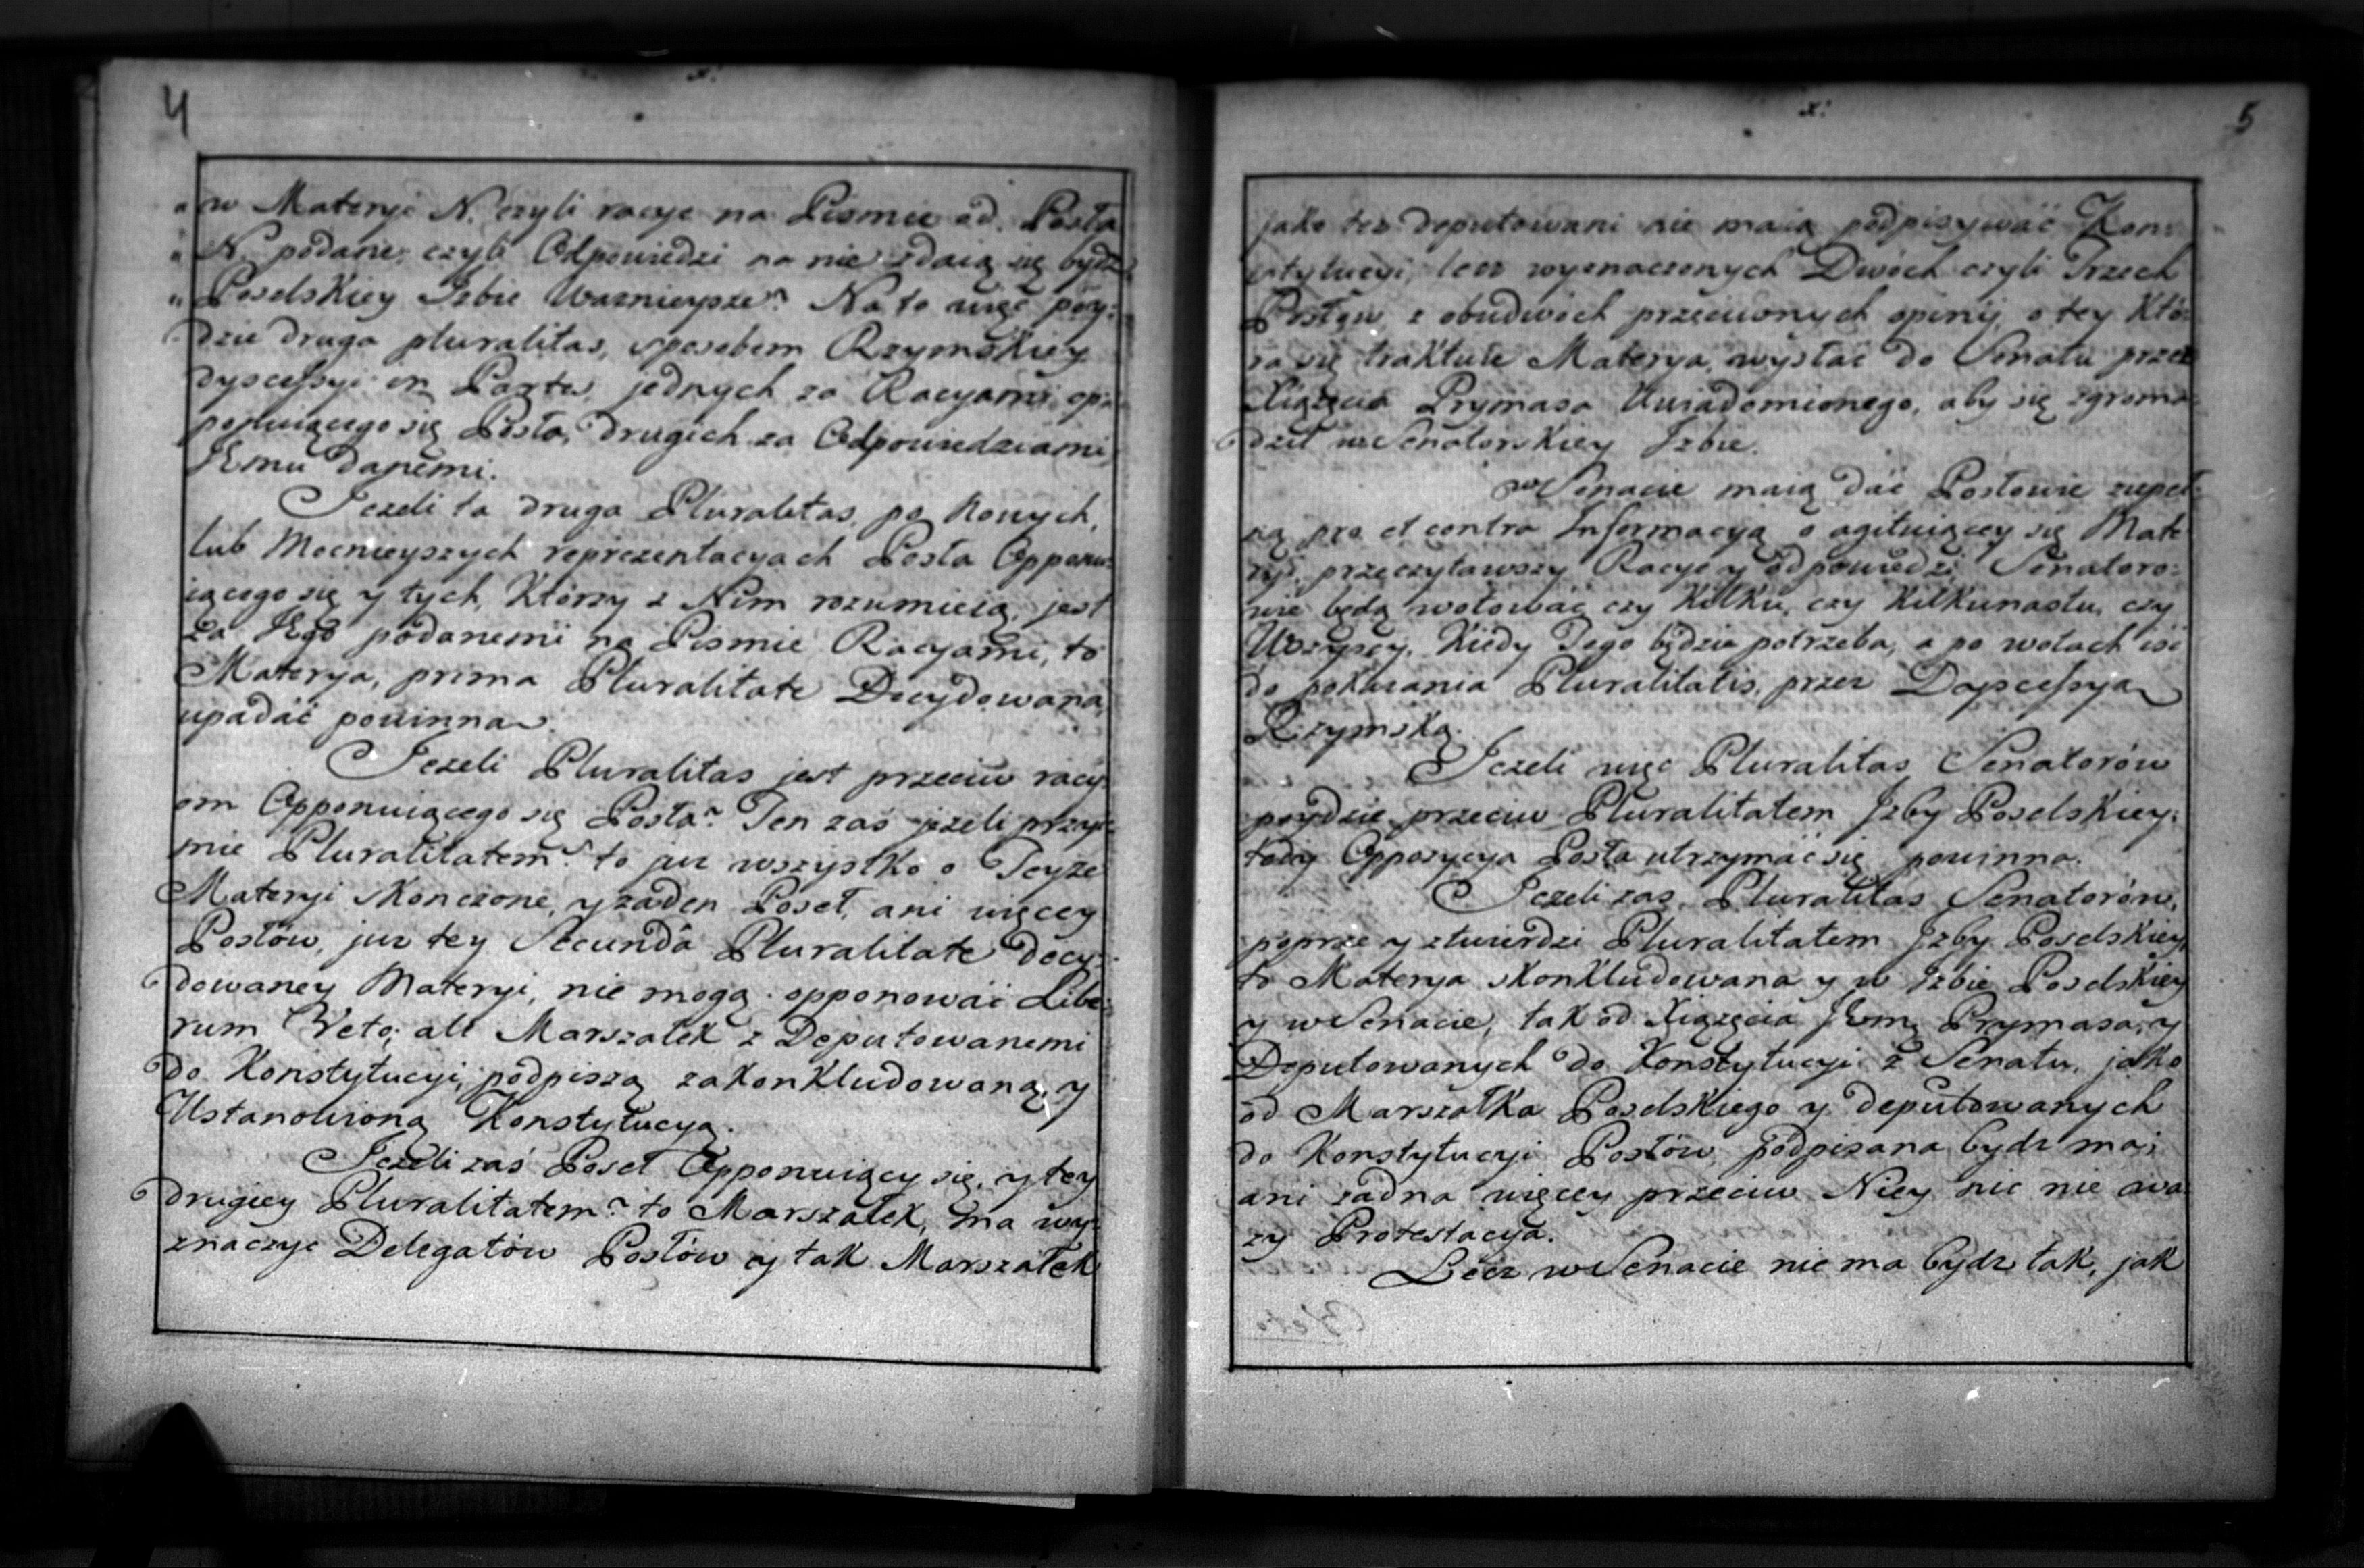 4
w Materyi N. czyli racye na Pismie od Posła
N. podane, czyli Odpowiedzi na nie zdaią się bydz
Poselskiey Izbie Waznieysze? Na to więc poy:
dzie druga pluralitas, sposobem Rzymskiey
dyscessyi in Partes, jednych za Racyami op:
ponuiącego się Posła, drugich za Odpowiedziami
Jemu danemi.
Jezeli ta druga Pluralitas po Nowych,
lub Mocnieyszych reprezentacyach Posła Opponu:
iącego się y tych, Którzy z Nim rozumieią, jest
za Jego podanemi na Pismie Racyami, to
Materya, prima Pluralitate Decydowana
upadać powinna.
Jezeli Pluralitas jest przeciw racy:
om Opponuiącego się Posła? Ten zaś jezeli przyi:
mie Pluralitatem? to juz wszystko o Teyze
Materyi skonczone, y zaden Poseł, ani więcey
Posłów, juz tey Secundâ Pluralitate decy:
dowaney Materyi, nie mogą opponować Libe:
rum Veto; ale Marszałek z Deputowanemi
do Konstytucyi, podpiszą zakonkludowaną, y
Ustanowioną Konstytucyą.
Jezeli zaś Poseł Opponuiący się, y tey
drugiey Pluralitatem? to Marszałek, ma wy:
znaczyć Delegatów Posłów y tak Marszałek
5
jako tez deputowani nie maią podpisywać Kon:
stytucyi, lecz wyznaczonych Dwóch czyli Trzech
Posłów z obudwóch przeciwnych opinij, o tey Któ:
ra się traktuie Materya, wysłać do Senatu przez
Xiązęcia Prymasa Uwiadomionego, aby się zgroma:
dził w Senatorskiey Izbie.
w Senacie maią dać Posłowie zupeł:
ną pro et contra Informacyą o agituiącey się Mate:
ryi, przeczytawszy Racye y odpowiedzi Senatoro:
wie będą wotować czy Kilku, czy Kilkunastu, czy
Wszyscy, Kiedy Tego będzie potrzeba, a po wotach iść
do pokazania Pluralitatis, przez Dyscessyą
Rzymską.
Jezeli więc Pluralitas Senatorów
poydzie przeciw Pluralitatem Izby Poselskiey:
tedy Oppozycya Posła utrzymać się powinna.
Jezeli zas Pluralitas Senatorów,
poprze y ztwierdzi Pluralitatem Izby Poselskiey,
to Materya skonkludowana y w Izbie Poselskiey
y w Senacie, tak od Xiązęcia Jemę Prymasa, y
Deputowanych do Konstytucyi z Senatu, jako
od Marszałka Poselskiego y deputowanych
do Konstytucyi Posłów, podpisana bydz ma;
ani zadna więcey przeciw Niey nic nie wa:
zy Protestacya.
Lecz w Senacie nie ma bydz tak, jak